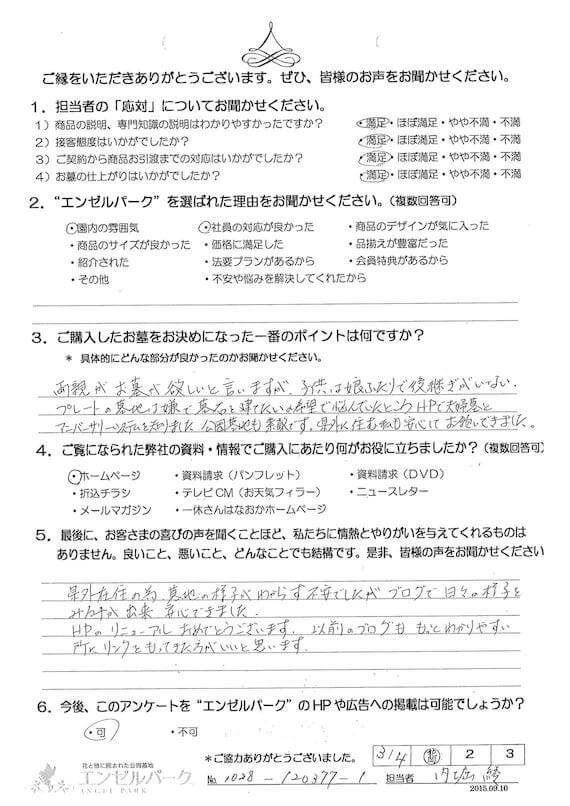 ご縁をいただきありがとうございます。ぜひ、皆様のお声をお聞かせください。
1. 担当者の「応対」についてお聞かせください。
1）商品の説明、専門知識の説明はわかりやすかったですか？ ・満足・ほぼ満足・やや不満・不満
2）接客態度はいかがでしたか？ ・満足・ほぼ満足・やや不満・不満
3）ご契約から商品お引渡までの対応はいかがでしたか？ ・満足・ほぼ満足・やや不満・不満
4）お墓の仕上がりはいかがでしたか？ ・満足・ほぼ満足・やや不満・不満
2. “エンゼルパーク”を選ばれた理由をお聞かせください。（複数回答可）
・園内の雰囲気 ・社員の対応が良かった ・商品のデザインが気に入った
・商品のサイズが良かった ・価格に満足した ・品揃えが豊富だった
・紹介された ・法要プランがあるから ・会員特典があるから
・その他 ・不安や悩みを解決してくれたから
3. ご購入したお墓をお決めになった一番のポイントは何ですか？
* 具体的にどんな部分が良かったのかお聞かせください。
両親がお墓が欲しいと言いますが、子供は娘ふたりで後継ぎがいない。
プレートの墓地は嫌で墓石を建てたいの希望で悩んでいたところHPで夫婦墓と
アニバーサリーシステムを知りました。公園墓地も素敵です。県外に住む私も安心してお願いできました。
4. ご覧になられた弊社の資料・情報でご購入にあたり何がお役に立ちましたか？（複数回答可）
・ホームページ ・資料請求（パンフレット） ・資料請求（DVD）
・折込チラシ ・テレビCM（お天気フィラー） ・ニュースレター
・メールマガジン ・一休さんはなおかホームページ
5. 最後に、お客さまの喜びの声を聞くことほど、私たちに情熱とやりがいを与えてくれるものは
ありません。良いこと、悪いこと、どんなことでも結構です。是非、皆様の声をお聞かせください
県外在住の為、墓地の様子がわからず不安でしたが ブログで日々の様子を
みる事が出来 安心できました。
HPのリニューアル おめでとうございます。以前のブログも もっとわかりやすい
所にリンクをもってきた方がいいと思います。
6. 今後、このアンケートを“エンゼルパーク”のHPや広告への掲載は可能でしょうか？
・可 ・不可
*ご協力ありがとうございました。 314 2 3
花と緑に囲まれた公園墓地
エンゼルパーク
ANGEL PARK
No. 1028-120377-1 担当者 内堀 綾
2015.09.10